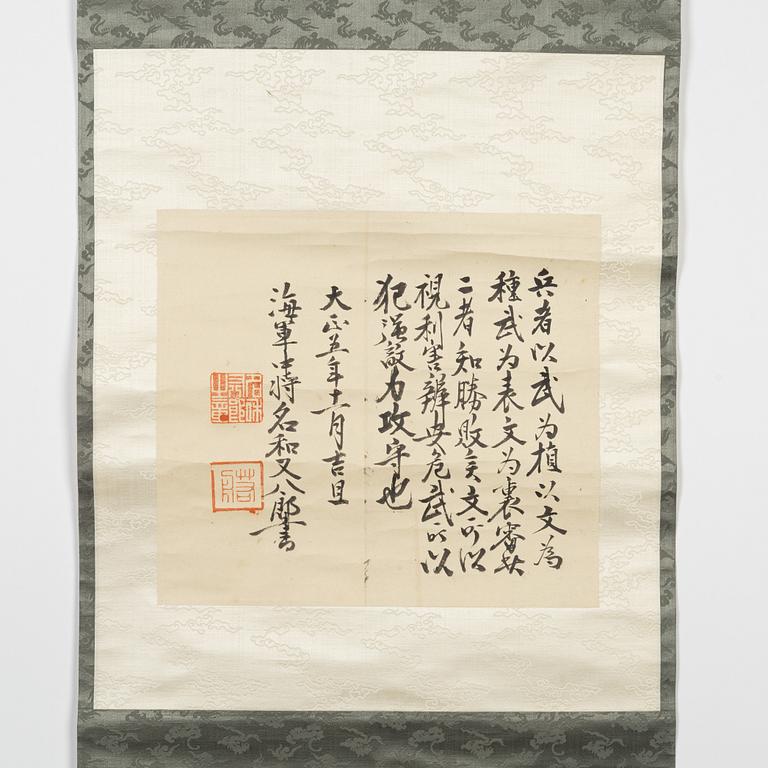 兵者以武为植以文為
種武为表文为裏審其
二者知勝敗矣文所以
視利害辨安危武所以
犯強敵力攻守也
大正五年十一月吉旦
海軍中将名和又八郎書